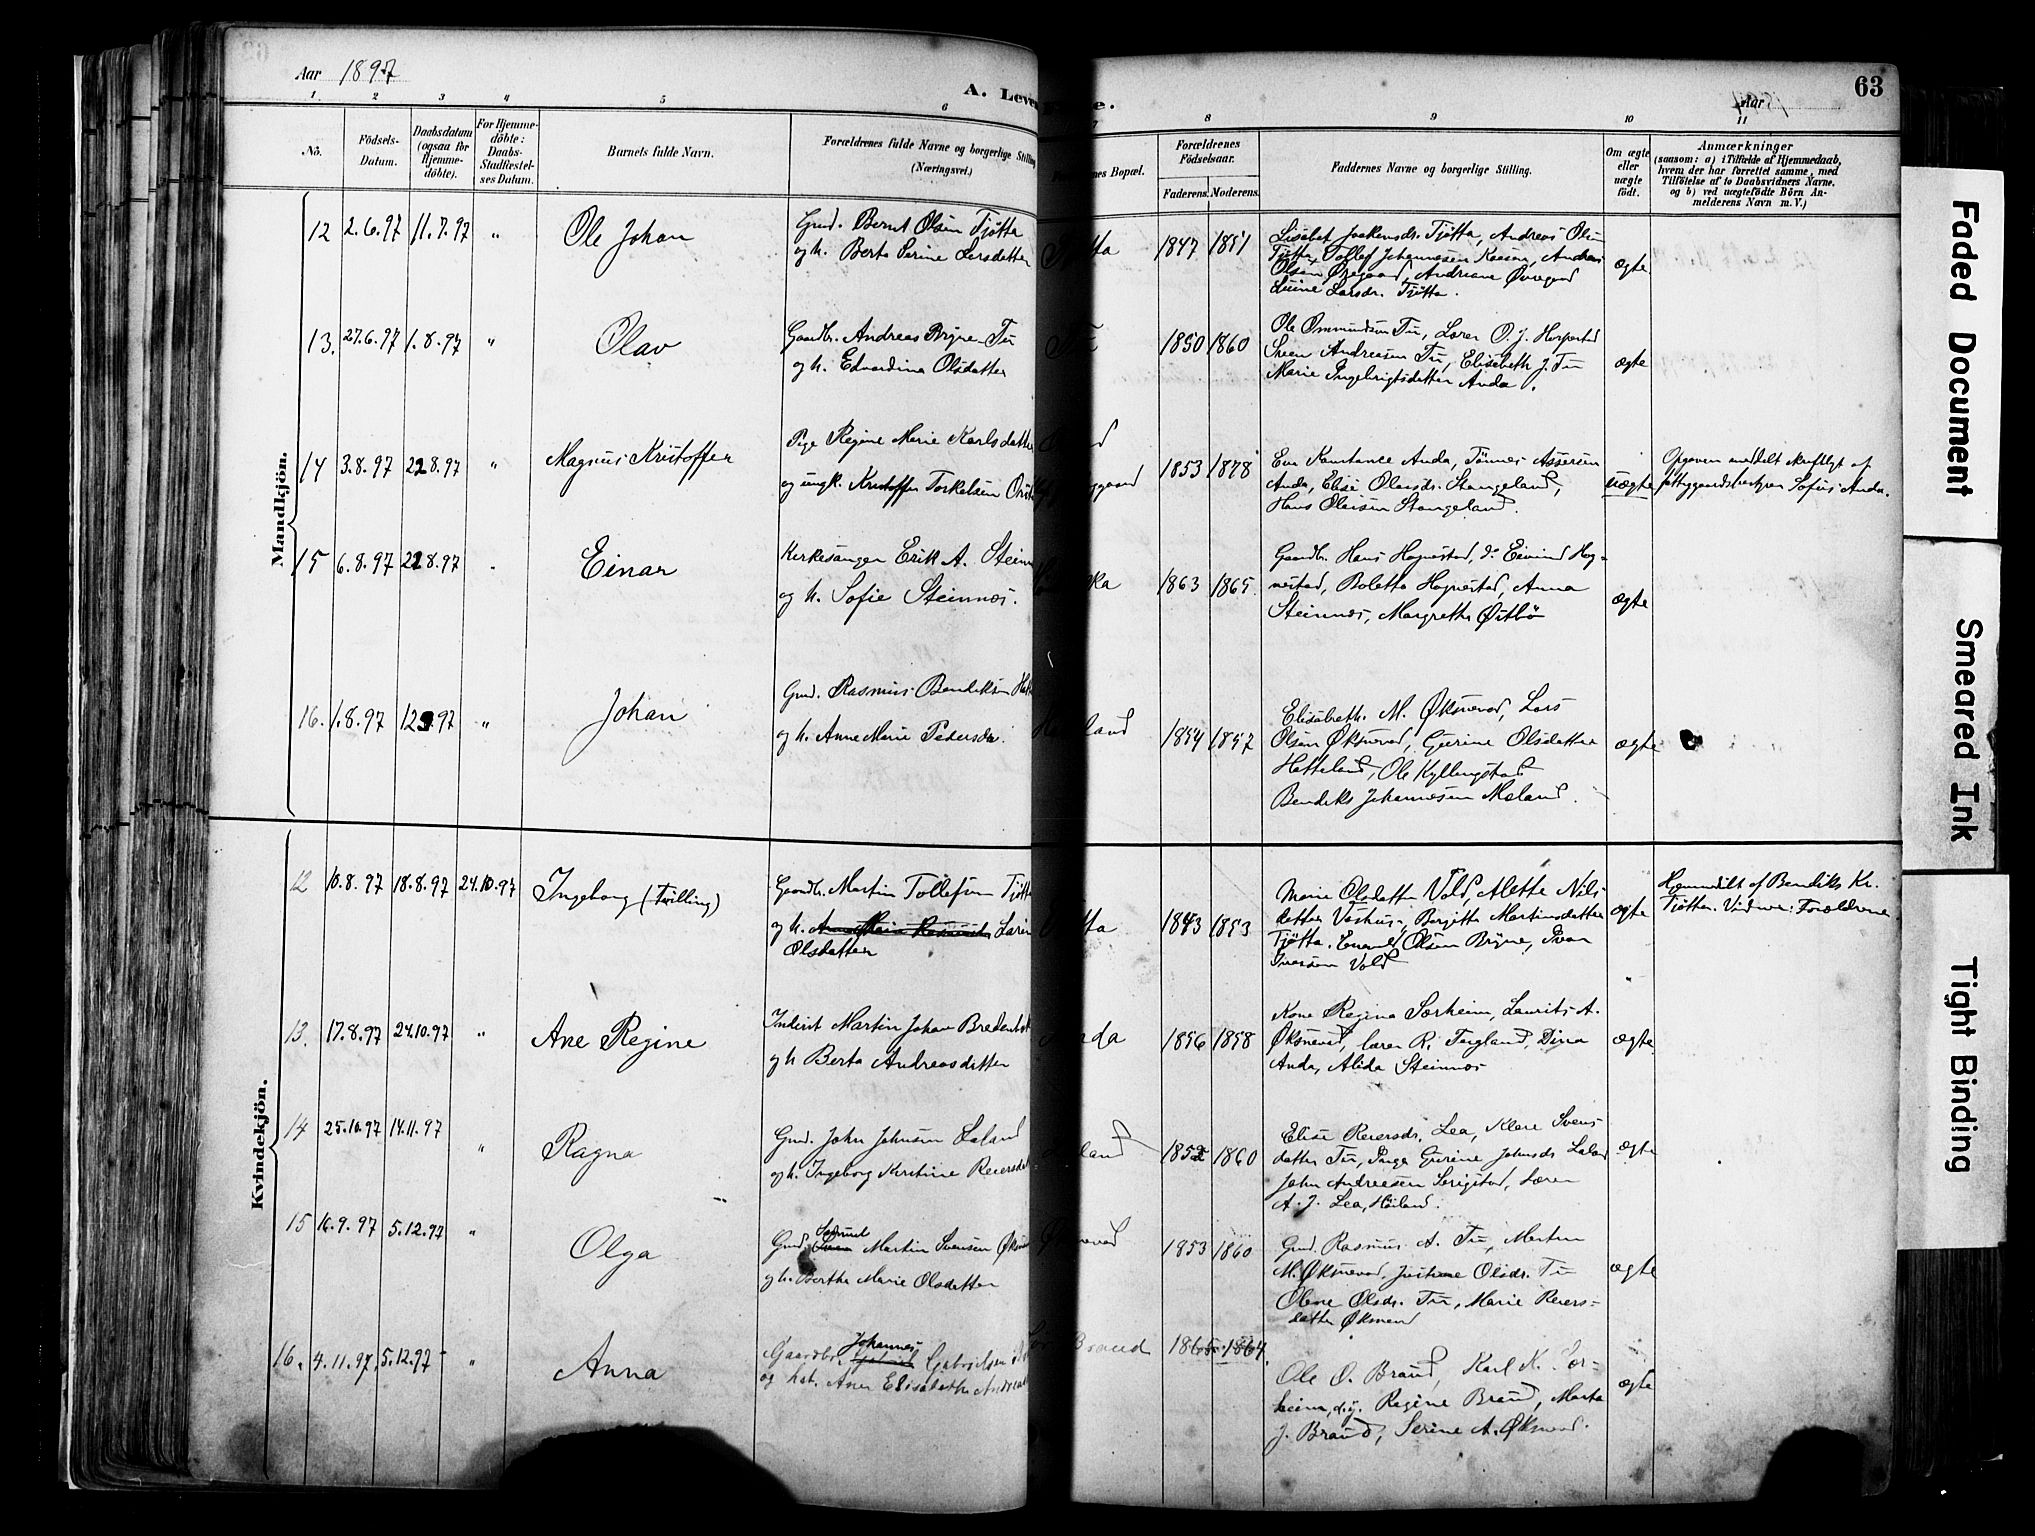 Aar 1897
A. Leve
e.
Aar 1897
63
1 2 3 4 5 6 7 8 9 10 11
No.
Födsels-Datum.
Daabsdatum (ogsaa for Hjemme-döbte).
For Hjemme-döbte: Daabs-Stadfæstel-ses Datum.
Barnets fulde Navn.
Forældrenes fulde Navne og borgerlige Stilling (Næringsvei.)
nes Bopæl.
Forældrenes Födselsaar.
Faderens.
Moderens.
Faddernes Navne og borgerlige Stilling.
Om ægte eller uægte født.
Anmærkninger
(saasom: a) i Tilfælde af Hjemmedaab,
hvem der har forrettet samme, med
Tilföielse af to Daabsvidners Navne.
og b) ved uægtefödte Börn An-
melderens Navn m. V.)
Mandkjön.
12 2.6.97 11.7.97 " Ole Johan
Gmd. Bernt Olsen Tjøtta
og h. Berta Serine Larsdatter
tta 1847 1851
Lisabet Joakimsdr. Tjøtta, Andreas Olsen
Tjøtta, Tollef Johannesen Kaasen, Andreas
Olsen Øvregaard, Andriane Øvregaard
Larsdr. Tjøtta.
ægte
13. 27.6.97 1.8.97 " Olav
Gaardbr. Andreas Bryne Tu
og h. Edvardine Olsdatter
Tu 1850 1860
Ole Ommundsen Tu, Lærer O. J. Horpestad
Sveen Andreasen Tu, Elisabeth J. Tu
Marie Ingebrigtsdatter Anda.
ægte
14 3.8.97 22.8.97 " Magnus Kristoffer
Pige Regine Marie Karlsdatter
og ungk. Kristoffer Torkelsen
1853 1878
Eva Konstance Anda, Tønnes Assersen
Anda, Elise Olavsdr. Stangeland,
Hans Olavsen Stangeland.
uægte
Opgaven meldt skriftligt af
fattiggaardsbestyrer Sofus Anda.
15 6.8.97 22.8.97 " Einar
Kirkesanger Erik A. Steinnes
og h. Sofie Steinnes.
ka 1863 1865
Gaardbr. Hans Hognestad, do Eivind Hog-
nestad, Boletta Hognestad, Anna
Steinnes, Margrethe Østbö
ægte
16. 1.8.97 12.9.97 " Johan
Gmd. Rasmus Bendiksen
og h. Anne Marie Pedersdr.
land 1854 1857
Elisabeth M. Øksnevad, Lars
Olsen Øksnevad, Gurine Olsdatter
Hatteland, Ole Kyllingstad
Bendiks Johannesen Meland.
ægte
Kvindekjön.
12 10.8.97 18.8.97 24.10.97 Ingeborg (Tvilling)
Gaardbr. Martin Tollefsen Tjøtta
og h. Anne Maria Rasmusdr. Larine
Olsdatter
tta 1843 1853
Marie Olsdatter Vold, Alette Nils-
datter Vashus, Bergitte Martinsdatter
Tjøtta, Enevald Olsen Bryne, Ivar
Iversen Vold
ægte
Hjemmedøbt af Bendiks Kr.
Tjøtta. Vidner: Forældrene
13. 17.8.97 24.10.97 " Ane Regine
Inderst Martin Johan
og h Berta Andreasdatter
da 1856 1858
Kone Regina Sørheim, Laurits A.
Øksnevad, lærer R. Tegland, Dina
Anda, Alida Steinnes
ægte
14 25.10.97 14.11.97 " Ragna
Gmd. John Johnsen Laland
og h. Ingeborg Kirstine Reiersdatter
land 1852 1860
Elise Reiersdr. Lea, Klare Svens-
datter Tu, Pige Gurine Johnsdr Laland
John Andreasen Serigstad, Lærer
A. J. Lea, Høiland.
ægte
15 16.9.97 5.12.97 " Olga
Gmd. Samuel Martin Svensen
og h. Berthe Marie Olsdatter
vad 1853 1860
Gmd. Rasmus A. Tu, Morten
M. Øksnevad, Justine Olsdr. Tu
Olene Olsdr. Tu, Marie Reiers-
datter Øksnevad
ægte
16. 4.11.97 5.12.97 " Anna
Gaardbr. Johannes Gabrielsen
og hst. Ane Elisabeth
Braud 1865 1864.
Ole O. Braud, Karl K. Sør-
heim, d.y. Regine Braud, Marta
J. Braud, Serine A. Øksnevad.
ægte
Faded Document
Smeared Ink
Tight Binding